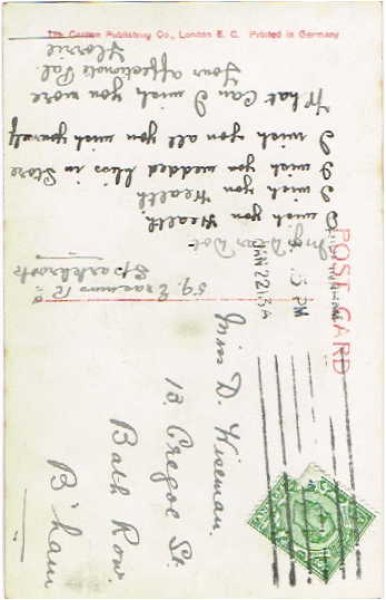 The Carlton Publishing Co., London E. C. Printed in Germany
POST CARD
PM
JAN 22 13
59. Erasmus Rd
Sparkbrook
My Dear Dot
I wish you Health,
I wish you Wealth
I wish you wedded bliss in Store
I wish you all you wish yourself
What Can I wish you more
Your affectionate Pal.
Florrie
Miss D. Wiseman.
13. Cregoe St.
Bath Row.
B'ham